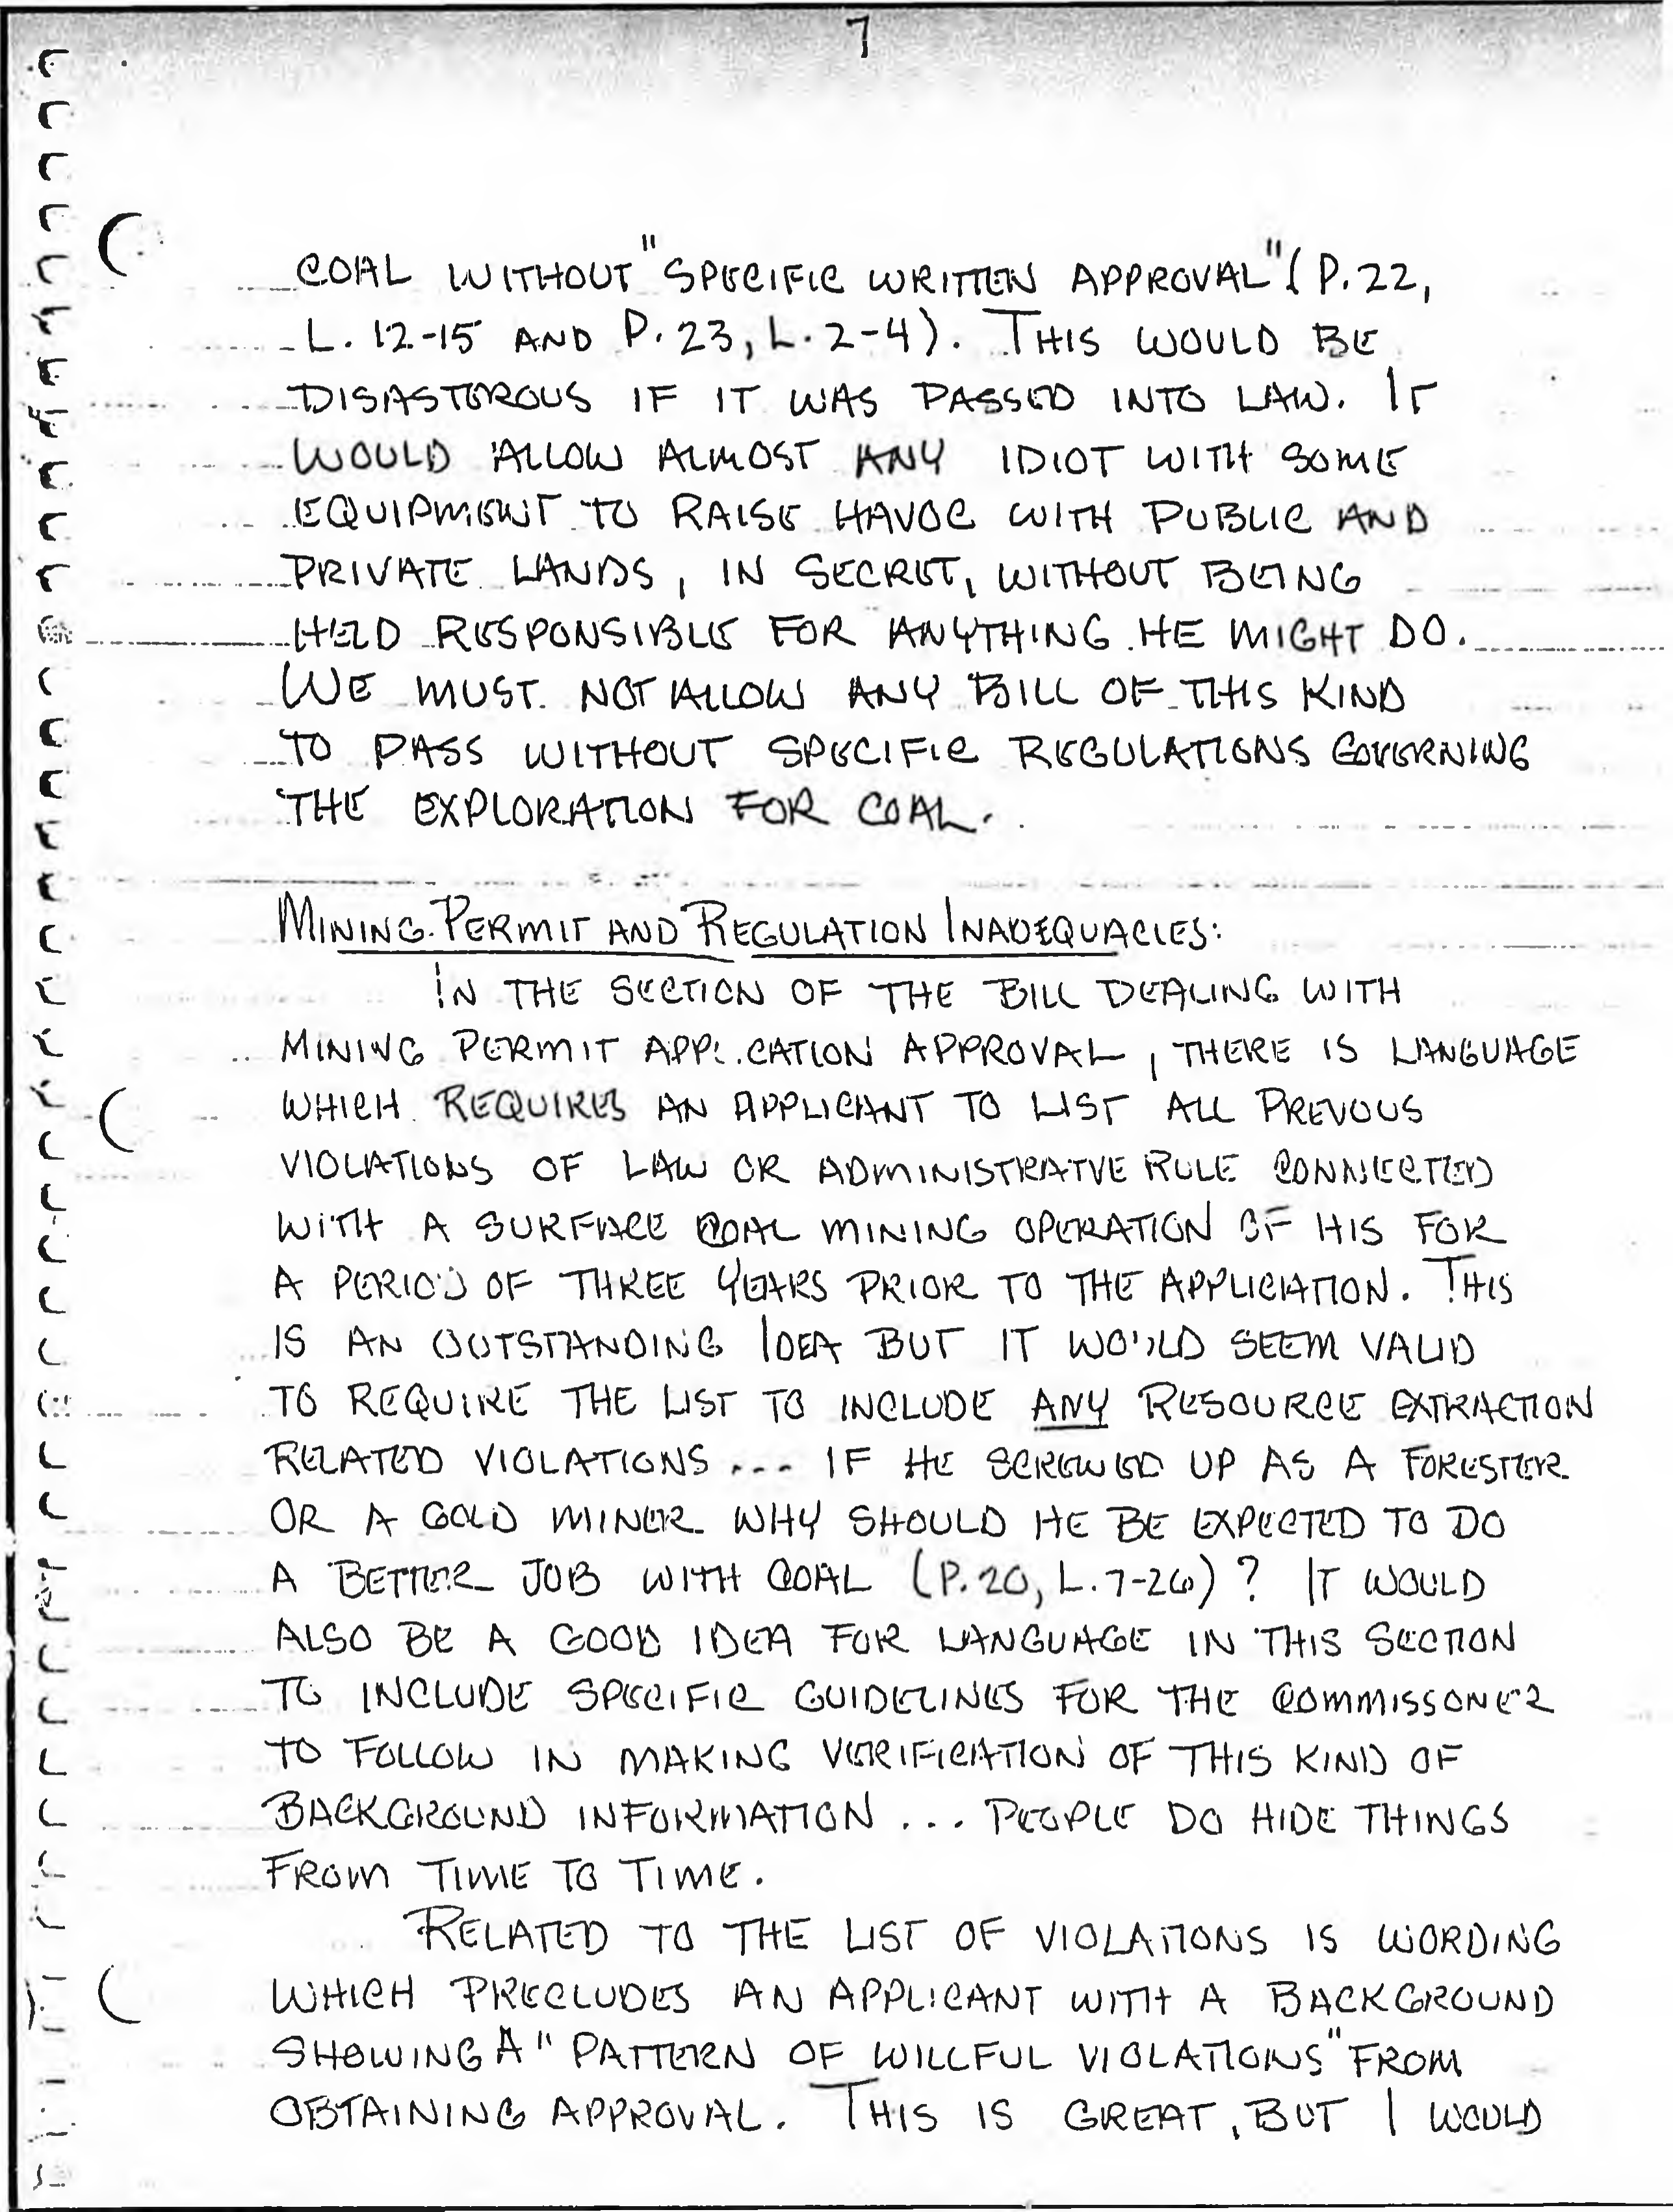 7
COAL WITHOUT "SPECIFIC WRITTEN APPROVAL" (P. 22,
L. 12-15 AND P. 23, L. 2-4). THIS WOULD BE
DISASTEROUS IF IT WAS PASSED INTO LAW. IT
WOULD ALLOW ALMOST ANY IDIOT WITH SOME
EQUIPMENT TO RAISE HAVOC WITH PUBLIC AND
PRIVATE LANDS, IN SECRET, WITHOUT BEING
HELD RESPONSIBLE FOR ANYTHING HE MIGHT DO.
WE MUST NOT ALLOW ANY BILL OF THIS KIND
TO PASS WITHOUT SPECIFIC REGULATIONS GOVERNING
THE EXPLORATION FOR COAL.
MINING PERMIT AND REGULATION INADEQUACIES:
IN THE SECTION OF THE BILL DEALING WITH
MINING PERMIT APPLICATION APPROVAL, THERE IS LANGUAGE
WHICH REQUIRES AN APPLICANT TO LIST ALL PREVOUS
VIOLATIONS OF LAW OR ADMINISTRATVE RULE CONNECTED
WITH A SURFACE COAL MINING OPERATION OF HIS FOR
A PERIOD OF THREE YEARS PRIOR TO THE APPLICATION. THIS
IS AN OUTSTANDING IDEA BUT IT WOULD SEEM VALID
TO REQUIRE THE LIST TO INCLUDE ANY RESOURCE EXTRACTION
RELATED VIOLATIONS ... IF HE SCREWED UP AS A FORESTER
OR A GOLD MINER WHY SHOULD HE BE EXPECTED TO DO
A BETTER JOB WITH COAL (P. 20, L. 7-26)? IT WOULD
ALSO BE A GOOD IDEA FOR LANGUAGE IN THIS SECTION
TO INCLUDE SPECIFIC GUIDELINES FOR THE COMMISSONER
TO FOLLOW IN MAKING VERIFICATION OF THIS KIND OF
BACKGROUND INFORMATION ... PEOPLE DO HIDE THINGS
FROM TIME TO TIME.
RELATED TO THE LIST OF VIOLATIONS IS WORDING
WHICH PRECLUDES AN APPLICANT WITH A BACKGROUND
SHOWING A "PATTERN OF WILLFUL VIOLATIONS" FROM
OBTAINING APPROVAL. THIS IS GREAT, BUT I WOULD